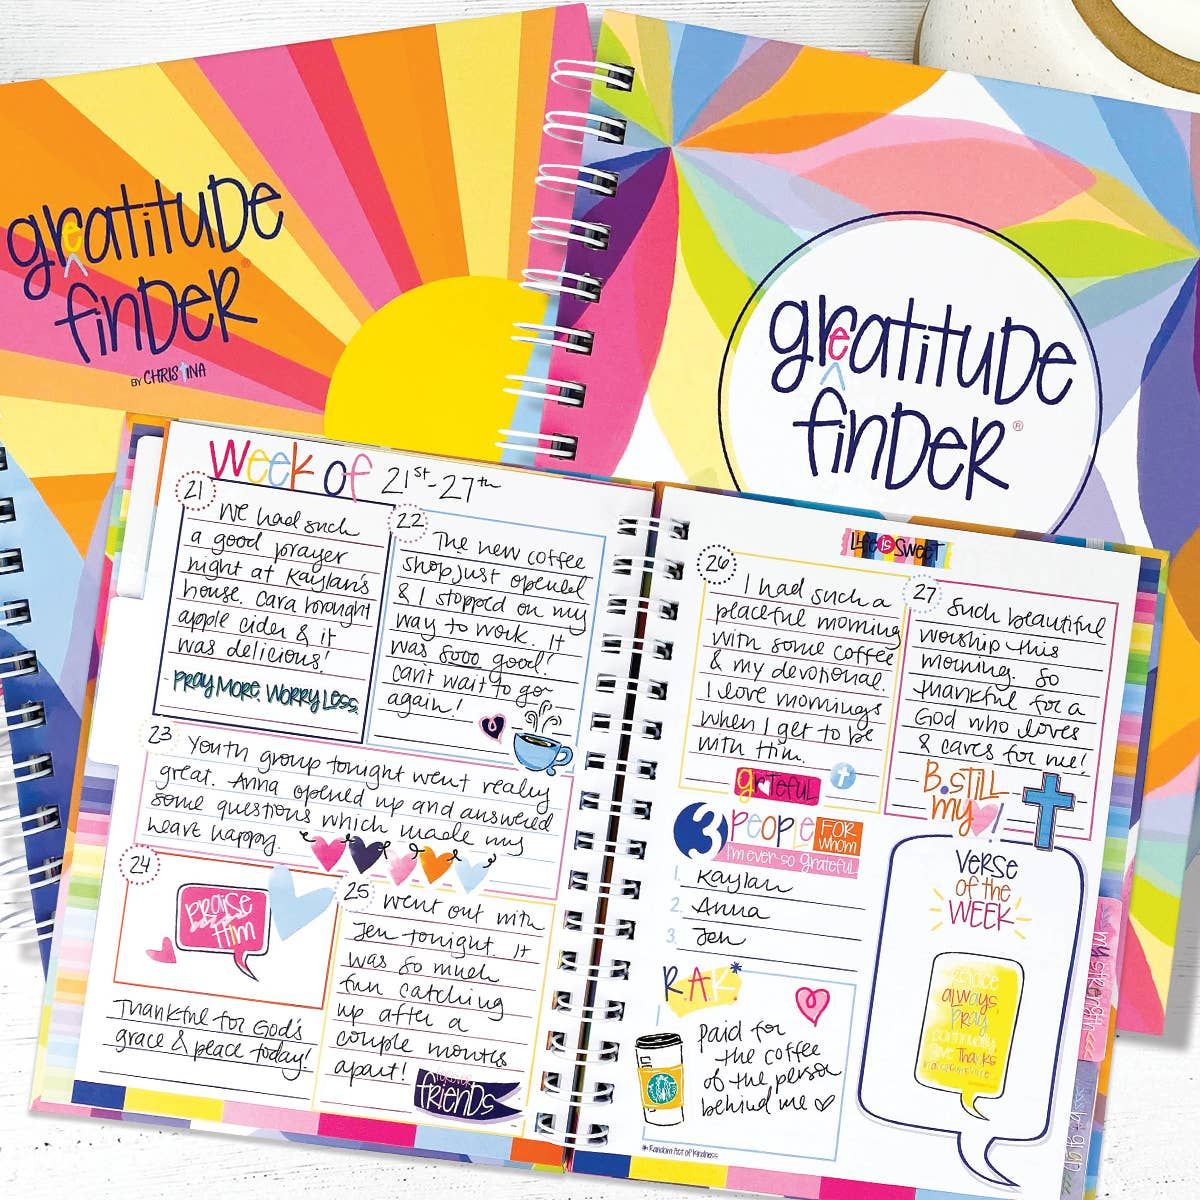 gratitude
e
finder®
BY CHRISTINA
gratitude
e
finder®
Week of 21st-27th
21
We had such
a good prayer
night at Kaylan's
house. Cara brought
apple cider & it
was delicious!
PRAY MORE. WORRY LESS.
22
The new coffee
shop just opened
& I stopped on my
way to work. It
was sooo good!
can't wait to go
again!
23
Youth group tonight went really
great. Anna opened up and answered
some questions which made my
heart happy.
24
PRAISE
Him
Thankful for God's
grace & peace today!
25
Went out with
Jen tonight. It
was so much
fun catching
up after a
couple months
apart!
FOREVER
FRIENDS
Life is Sweet
26
I had such a
peaceful morning
with some coffee
& my devotional.
I love mornings
when I get to be
with Him.
grateful
27
Such beautiful
worship this
morning. So
thankful for a
God who loves
& cares for me!
B.STILL
my !
3 PEOPLE FOR WHOM
I'm ever-so grateful
1. Kaylan
2. Anna
3. Jen
R.A.K.*
Paid for
the coffee
of the person
behind me ♡
*Random Act of Kindness
VERSE
OF THE
WEEK
Rejoice
always,
pray
continually,
give thanks
in all circumstances
my strength